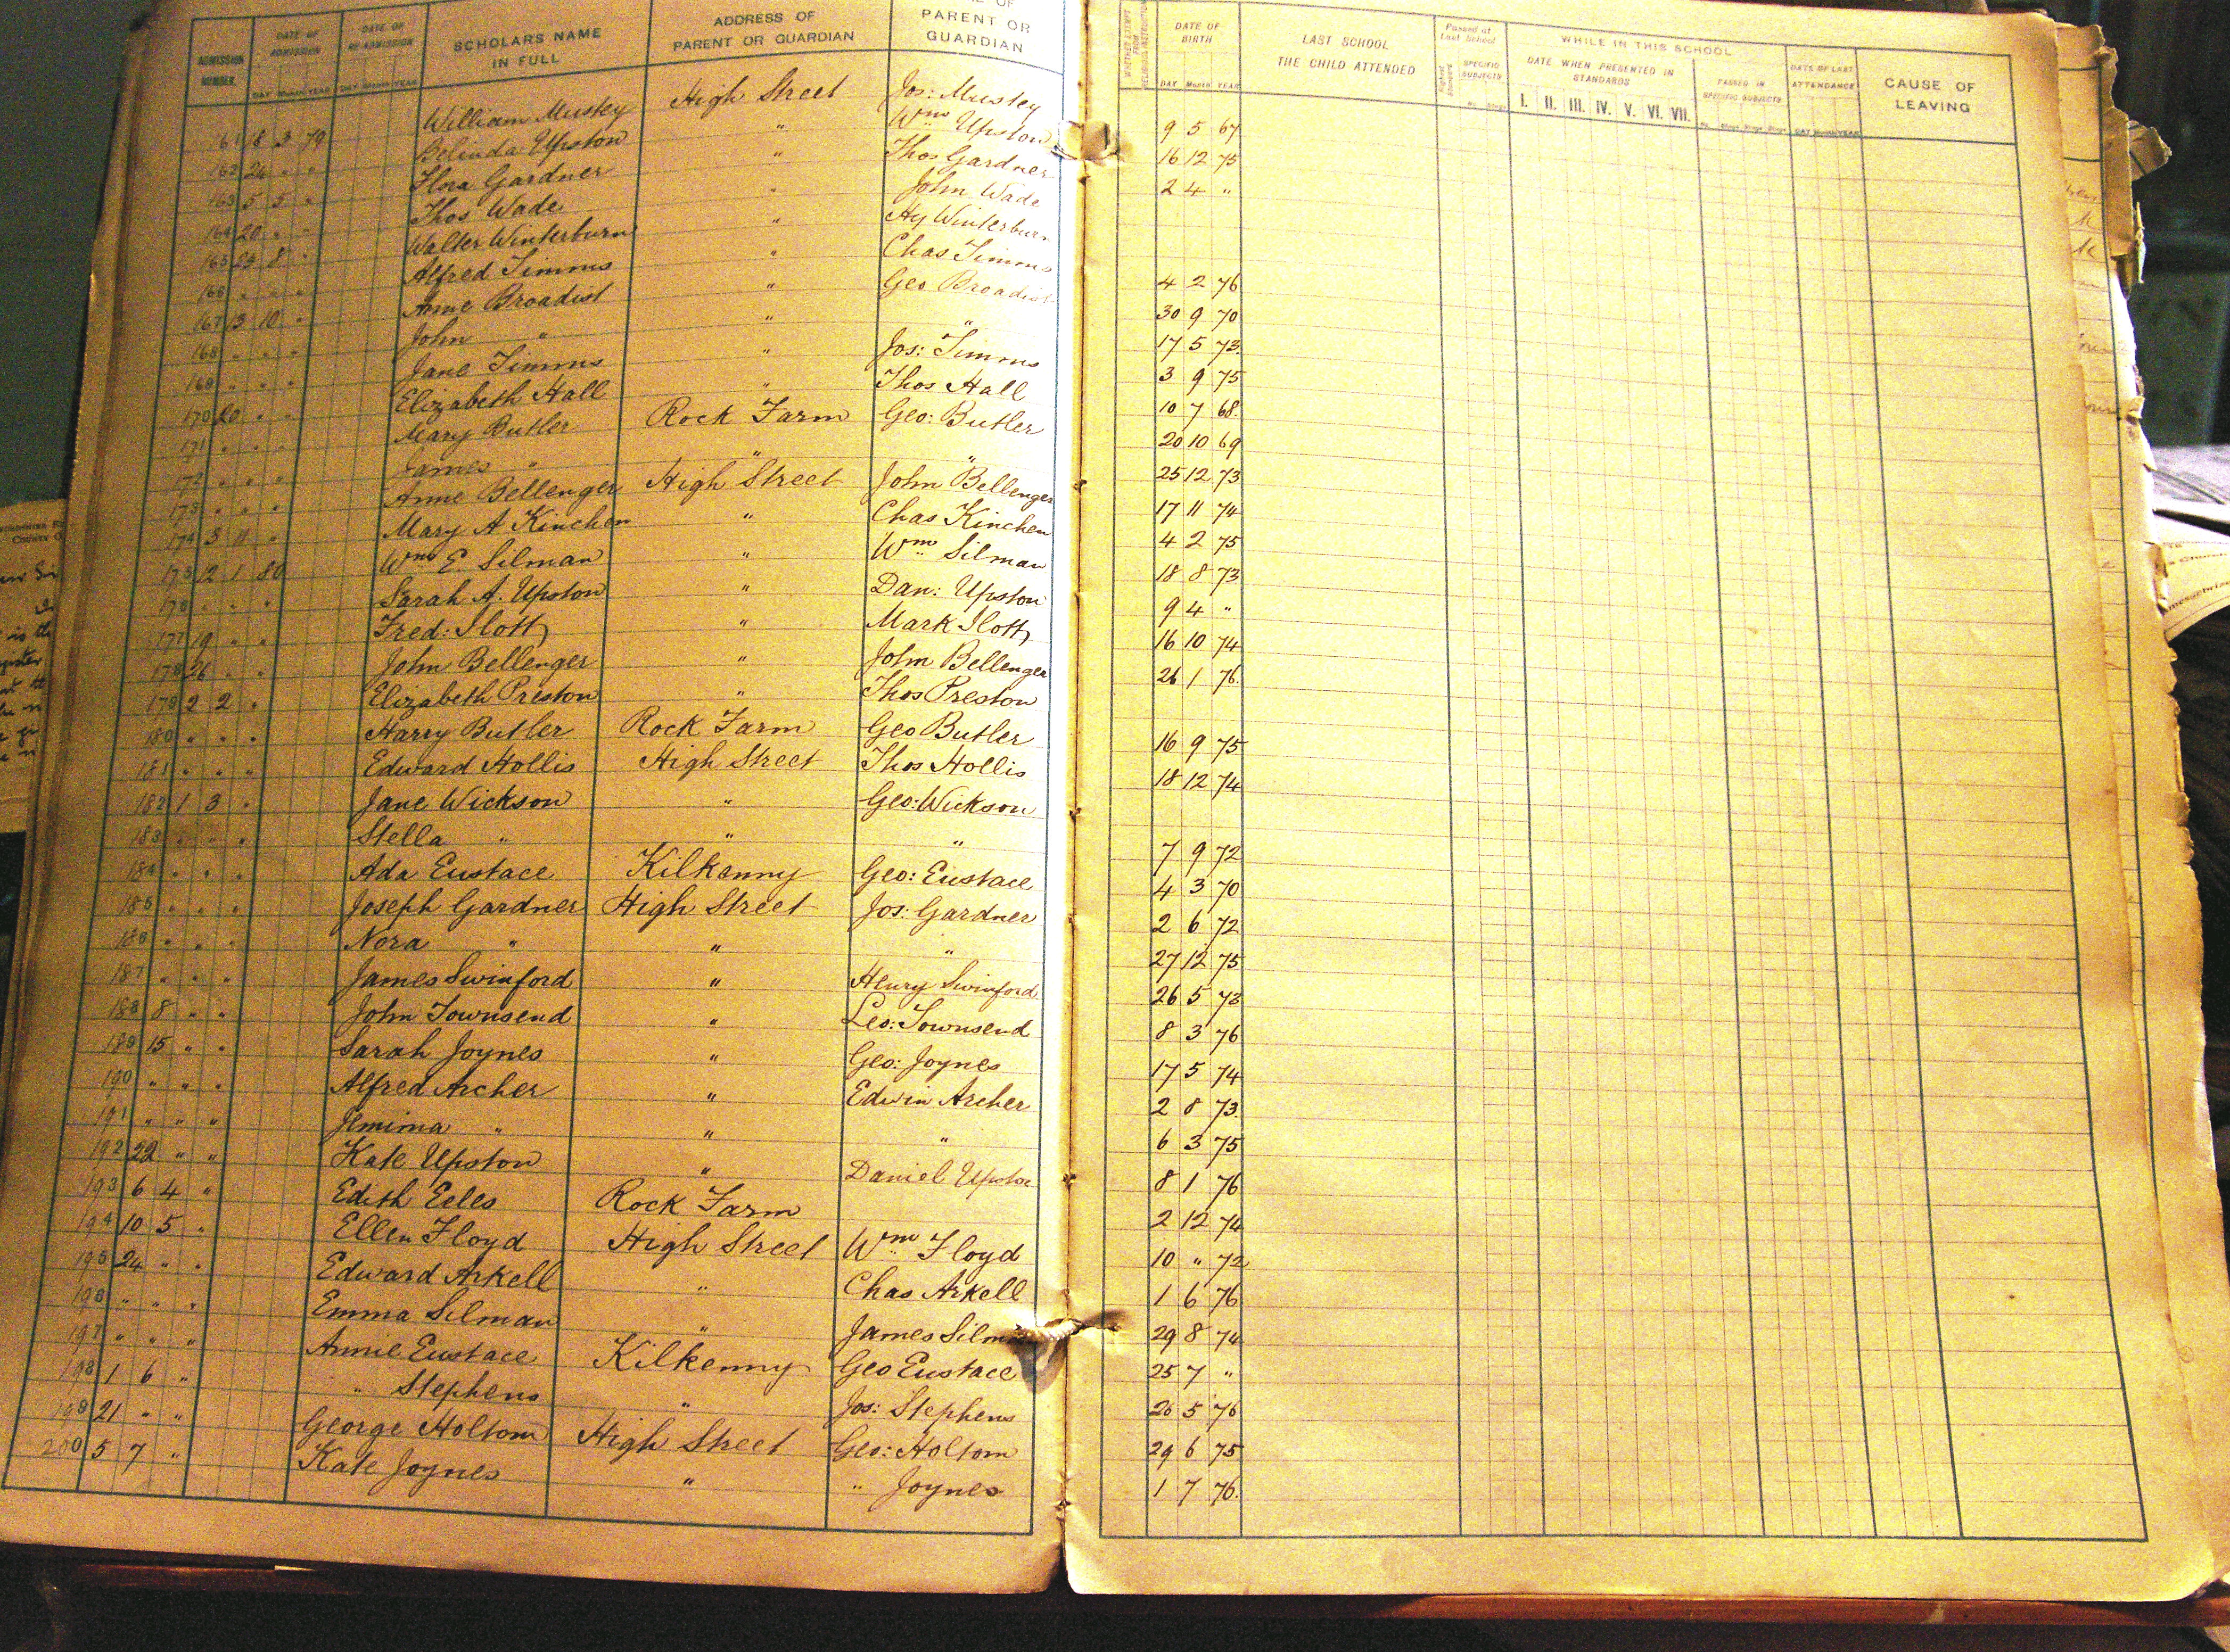 ADMISSION NUMBER
DATE OF ADMISSION
DAY Month YEAR
DATE OF RE-ADMISSION
DAY Month YEAR
SCHOLARS NAME IN FULL
ADDRESS OF PARENT OR GUARDIAN
OF PARENT OR GUARDIAN
61 8 3 79 William Mustey High Street Jos: Mustey
162 24 " " Belinda Upston " Wm Upston
163 5 5 " Flora Gardner " Thos Gardner
164 20 " " Thos Wade " John Wade
165 8 " Walter Winterburn " Hy Winterburn
166 " " " Alfred Timms " Chas Timms
167 13 10 " Anne Broadist " Geo Broadist
168 " " " John " " "
169 " " " Jane Timms " Jos: Timms
170 20 " " Elizabeth Hall " Thos Hall
171 " " " Mary Butler Rock Farm Geo: Butler
172 " " " James " " "
173 " " " Anne Bellenger High Street John Bellenger
174 3 11 " Mary A Kinchen " Chas Kinchen
175 12 1 80 Wm E Silman " Wm Silman
176 " " " Sarah A. Upston " Dan: Upston
177 19 " " Fred: Slott " Mark Slott
178 26 " " John Bellenger " John Bellenger
179 2 2 " Elizabeth Preston " Thos Preston
180 " " " Harry Butler Rock Farm Geo Butler
181 " " " Edward Hollis High Street Thos Hollis
182 1 3 " Jane Wickson " Geo: Wickson
183 " " " Stella " " "
184 " " " Ada Eustace Kilkenny Geo: Eustace
185 " " " Joseph Gardner High Street Jos: Gardner
186 " " " Nora " " "
187 " " " James Swinford " Henry Swinford
188 8 " " John Townsend " Leo: Townsend
189 15 " " Sarah Joynes " Geo: Joynes
190 " " " Alfred Archer " Edwin Archer
191 " " " Jemima " " "
192 22 " " Kate Upston " Daniel Upston
193 6 4 " Edith Eeles Rock Farm
194 10 5 " Ellen Floyd High Street Wm Floyd
195 24 " " Edward Arkell " Chas Arkell
196 " " " Emma Silman " James Silman
197 " " " Annie Eustace Kilkenny Geo Eustace
198 1 6 " " Stephens " Jos: Stephens
199 21 " " George Holtom High Street Geo: Holtom
200 5 7 " Kate Joynes " " Joynes
DATE OF BIRTH
DAY Month YEAR
LAST SCHOOL THE CHILD ATTENDED
Passed at Last School
SPECIFIC SUBJECTS
WHILE IN THIS SCHOOL
DATE WHEN PRESENTED IN STANDARDS
I. II. III. IV. V. VI. VII.
PASSED IN SPECIFIC SUBJECTS
DATE OF LAST ATTENDANCE
DAY Month YEAR
CAUSE OF LEAVING
9 5 67
16 12 75
2 4 "
4 2 76
30 9 70
17 5 73
3 9 75
10 7 68
20 10 69
25 12 73
17 11 74
4 2 75
18 8 73
9 4 "
16 10 74
26 1 76
16 9 75
18 12 74
7 9 72
4 3 70
2 6 72
27 12 75
26 5 73
8 3 76
17 5 74
2 8 73
6 3 75
8 1 76
2 12 74
10 " 72
1 6 76
29 8 74
25 7 "
26 5 76
29 6 75
1 7 76